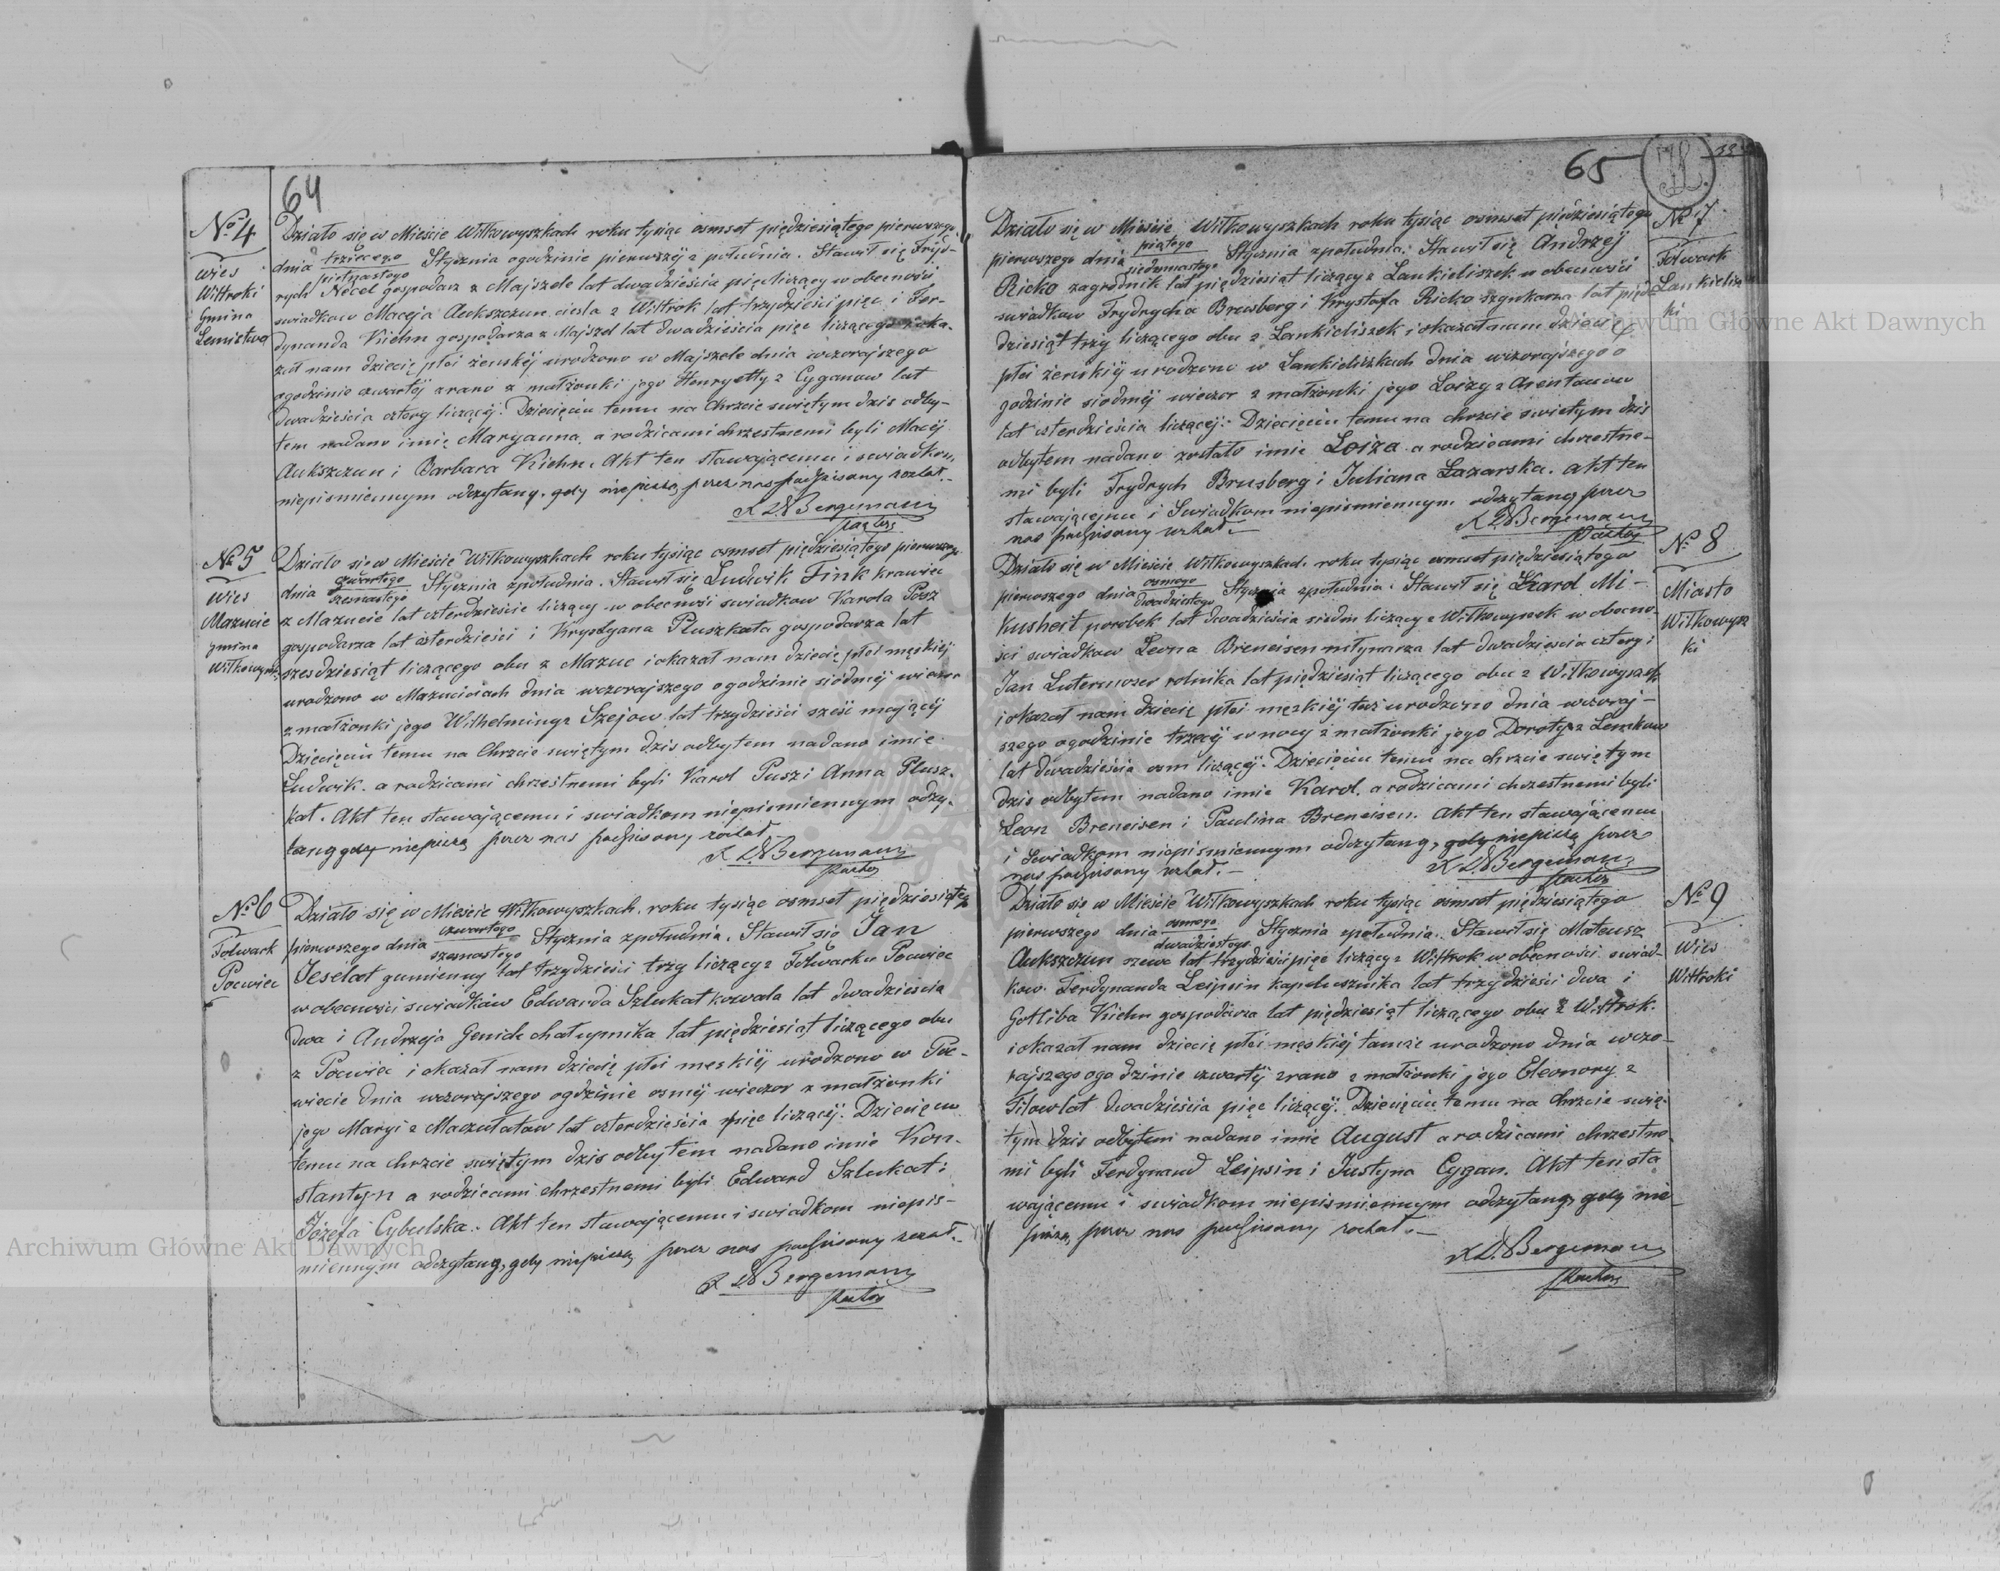 64
№ 4
Wies
Wittroki
Gmina
Lemistwo
Działo się w Mieście Wiłkowyszkach roku tysiąc osmset pięddziesiątego pierwszego
dnia trzeciego / pietnastego Stycznia ogodzinie pierwszéj z południa. Stawił się Fryd-
rych Necel gospodarz z Majszele lat dwadzieścia pięć liczący w obecności
swiadkow Macieja Aukszczun ciesla z Wittrok lat trzydzieści pięc i Fer-
dynanda Kiehn gospodarza z Majszel lat dwadzieścia pięc liczącego i oka-
zał nam dziecię płci żenskiéj urodzone w Majszele dnia wczorajszego
ogodzinie czwartéj zrano z małżonki jego Henryetty z Cyganow lat
dwadzieścia cztery liczącéj. Dziecięciu temu na Chrzcie swiętym dzis odby-
tem nadano imię Maryanna, a rodzicami chrzestnemi byli Maciéj
Aukszczun i Barbara Kiehn. Akt ten stawającemu i swiadkom
niepismiennym odczytany, gdy niepiszą, przez nas podpisany został.-
Bergemann
Pastor
№ 5
Wies
Mazucie
gmina
Wiłkowyszki
Działo się w Mieście Wiłkowyszkach roku tysiąc osmset pięddziesiątego pierwszego
dnia czwartego / szesnastego Stycznia zpołudnia. Stawił się Ludwik Fink krawiec
z Mazucie lat czterdzieście liczący w obecności swiadkow Karola Posz
gospodarza lat czterdzieści i Krystyana Pluszkata gospodarza lat
szesdziesiąt liczącego obu z Mazuc i okazał nam dziecię płci męskiéj
urodzone w Mazuciach dnia wczorajszego ogodzinie siódméj wieczor
z małżonki jego Wilhelminy z Szejow lat trzydzieści sześć mającéj
Dziecięciu temu na Chrzcie swiętym dzis odbytem nadano imie
Ludwik. a rodzicami chrzestnemi byli Karol Pusz i Anna Plusz-
kat. Akt ten stawającemu i swiadkom niepismiennym odczy-
tany gdy niepiszą przez nas podpisany został.
Bergemann
Pastor
№ 6
Folwark
Pocwiec
Działo się w Mieście Wiłkowyszkach. roku tysiąc osmset pięddziesiątego
pierwszego dnia czwartego / szesnastego Stycznia zpołudnia. Stawił się Jan
Jeselat gumienny lat trzydzieści trzy liczący z Folwarku Pocwiec
w obecności swiadków Edwarda Szlukat kowala lat dwadzieścia
dwa i Andrzeja Genick chałupnika lat pięddziesiąt liczącego obu
z Pocwiec i okazał nam dziecię płci męskiéj urodzone w Poc-
wiecie dnia wczorajszego ogdzinie osméj wieczor z małżonki
jego Maryi z Maczulatow lat czterdzieścia pięc liczącéj. Dziecięciu
temu na chrzcie swiętym dzis odbytem nadano imie Kon-
stantyn a rodzicami chrzestnemi byli Edward Szlukat i
Józefa Cybulska. Akt ten stawającemu i swiadkom niepis-
miennym odczytany, gdy niepiszą przez nas podpisany został.-
Bergemann
Pastor
65
№ 7
Folwark
Lankielisz
ki
Działo się w Mieście Wiłkowyszkach roku tysiąc osmset pięddziesiątego
pierwszego dnia piątego / siedmnastego Stycznia zpołudnia. Stawił się Andrzéj
Ricko zagrodnik lat pięddziesiąt liczący z Lankieliszek w obecności
swiadkow Frydrycha Brusberg i Krystofa Ricko szynkarza lat pięd-
dziesiąt trzy liczącego obu z Lankieliszek i okazał nam dziecię
płci żenskiéj urodzone w Lankieliszkach dnia wczorajszego o
godzinie siodméj wieczor z małżonki jego Loizy z Arentow
lat czterdzieścia liczącéj. Dziecięciu temu na chrzcie swietym dzis
odbytem nadano zostało imie Loiza a rodzicami chrzestne-
mi byli Frydrych Brusberg i Juliana Lazarska. Akt ten
stawającemu i Swiadkom niepismiennym odczytany przez
nas podpisany został.-
Bergemann
Pastor
№ 8
Miasto
Wiłkowysz
ki
Działo się w Mieście Wiłkowyszkach. roku tysiąc osmset pięddziesiątego
pierwszego dnia osmego / dwudziestego Stycznia zpołudnia. Stawił się Karol Mi-
kusheit parobek lat dwadzieścia siedm liczący z Wiłkowyszek w obecno-
ści swiadkow Leona Breneisen młynarza lat dwadzieścia cztery i
Jan Lutermozer rolnika lat pięddziesiąt liczącego obu z Wiłkowyszek
i okazał nam dziecię płci męzkiéj tuż urodzone dnia wczoraj-
szego ogodzinie trzecéj w nocy z małżonki jego Doroty z Lemkow
lat dwadzieścia osm liczącéj. Dziecięciu temu na chrzcie swiętym
dzis odbytem nadano imie Karol, a rodzicami chrzestnemi byli
Leon Breneisen i Paulina Breneisen. Akt ten stawającemu
i Swiadkom niepismiennym odczytany, gdy niepiszą przez
nas podpisany został.-
Bergemann
Pastor
№ 9
Wies
Wittroki
Działo się w Mieście Wiłkowyszkach roku tysiąc osmset pięddziesiątego
pierwszego dnia osmego / dwudziestego Stycznia zpołudnia. Stawił się Mateusz
Aukszczun szewc lat trzydzieści pięc liczący z Wittrok w obecności swiad-
kow. Ferdynanda Leipsin kapelusznika lat trzydzieści dwa i
Gotliba Kiehn gospodarza lat pięddziesiąt liczącego obu z Wittrok.
i okazał nam dziecię płci męskiéj tamże urodzone dnia wczo-
rajszego ogodzinie czwartéj zrano z małżonki jego Eleonory z
Tilow lat dwadzieścia pięc liczącéj. Dziecięciu temu na chrzcie swię-
tym dzis odbytem nadano imie August a rodzicami chrzestne-
mi byli Ferdynand Leipsin i Justyna Cygan. Akt ten sta
wającemu i swiadkom niepismiennym odczytany, gdy nie
piszą, przez nas podpisany został.-
Bergemann
Pastor
Archiwum Główne Akt Dawnych
Archiwum Główne Akt Dawnych